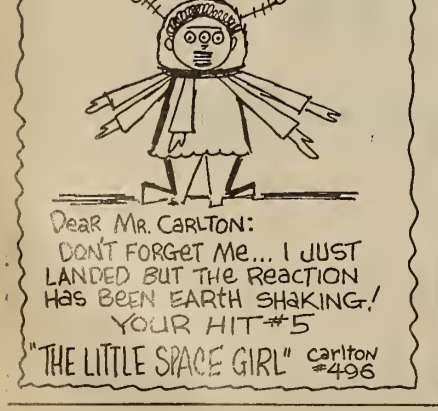 Dear MR. CARLTON:
DON'T FORGET Me... I JUST
LANDED BUT THE ReacTION
Has BEEN EARTH SHAKING!
YOUR HIT #5
"THE LITTLE SPACE GIRL" carlton
#496